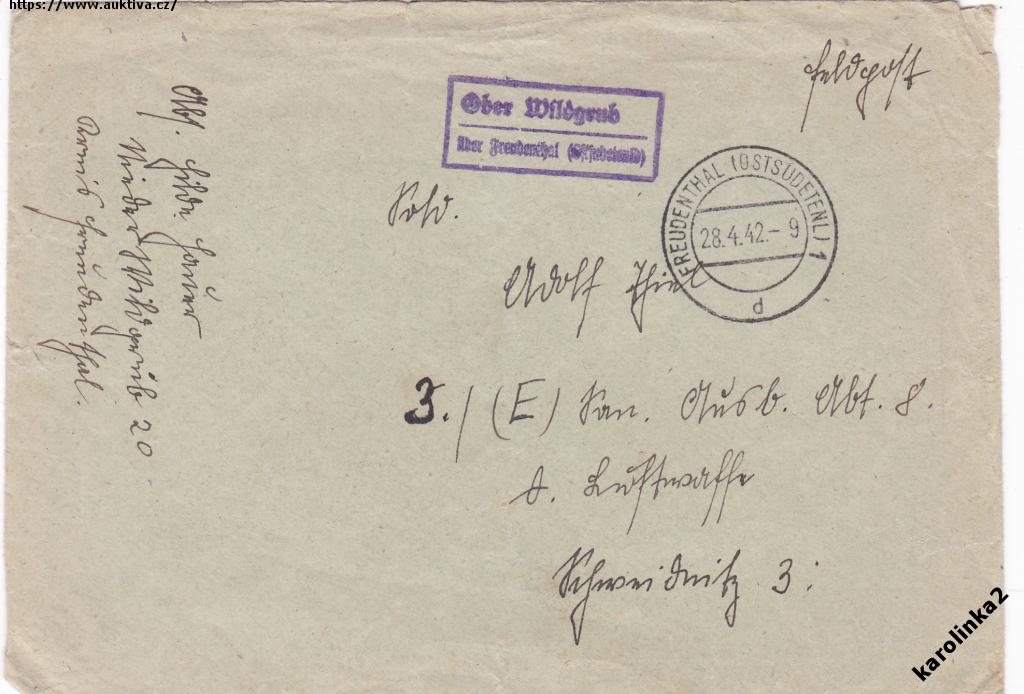 https://www.auktiva.cz/
Feldpost
Ober Wildgrub
über Freudenthal (Ostsudetenld)
FREUDENTHAL (OSTSUDETENL) 1
28.4.42.- 9
d
Sold.
Adolf Thiel
3./(E) San. Ausb. Abt. 8.
d. Luftwaffe
Schweidnitz 3.
Abs. Hilde
Nieder Wildgrub 20
Kreis Freudenthal.
karolinka2